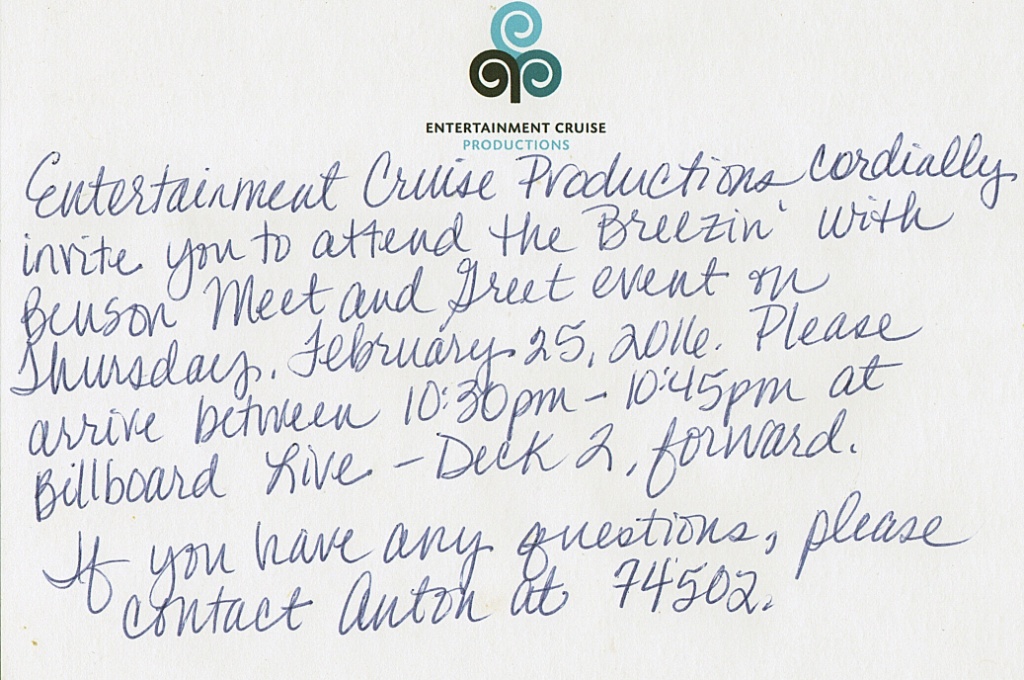 ENTERTAINMENT CRUISE
PRODUCTIONS
Entertainment Cruise Productions cordially
invite you to attend the Breezin' with
Benson Meet and Greet event on
Thursday, February 25, 2016. Please
arrive between 10:30pm - 10:45pm at
Billboard Live - Deck 2, forward.
If you have any questions, please
contact Anton at 74502.